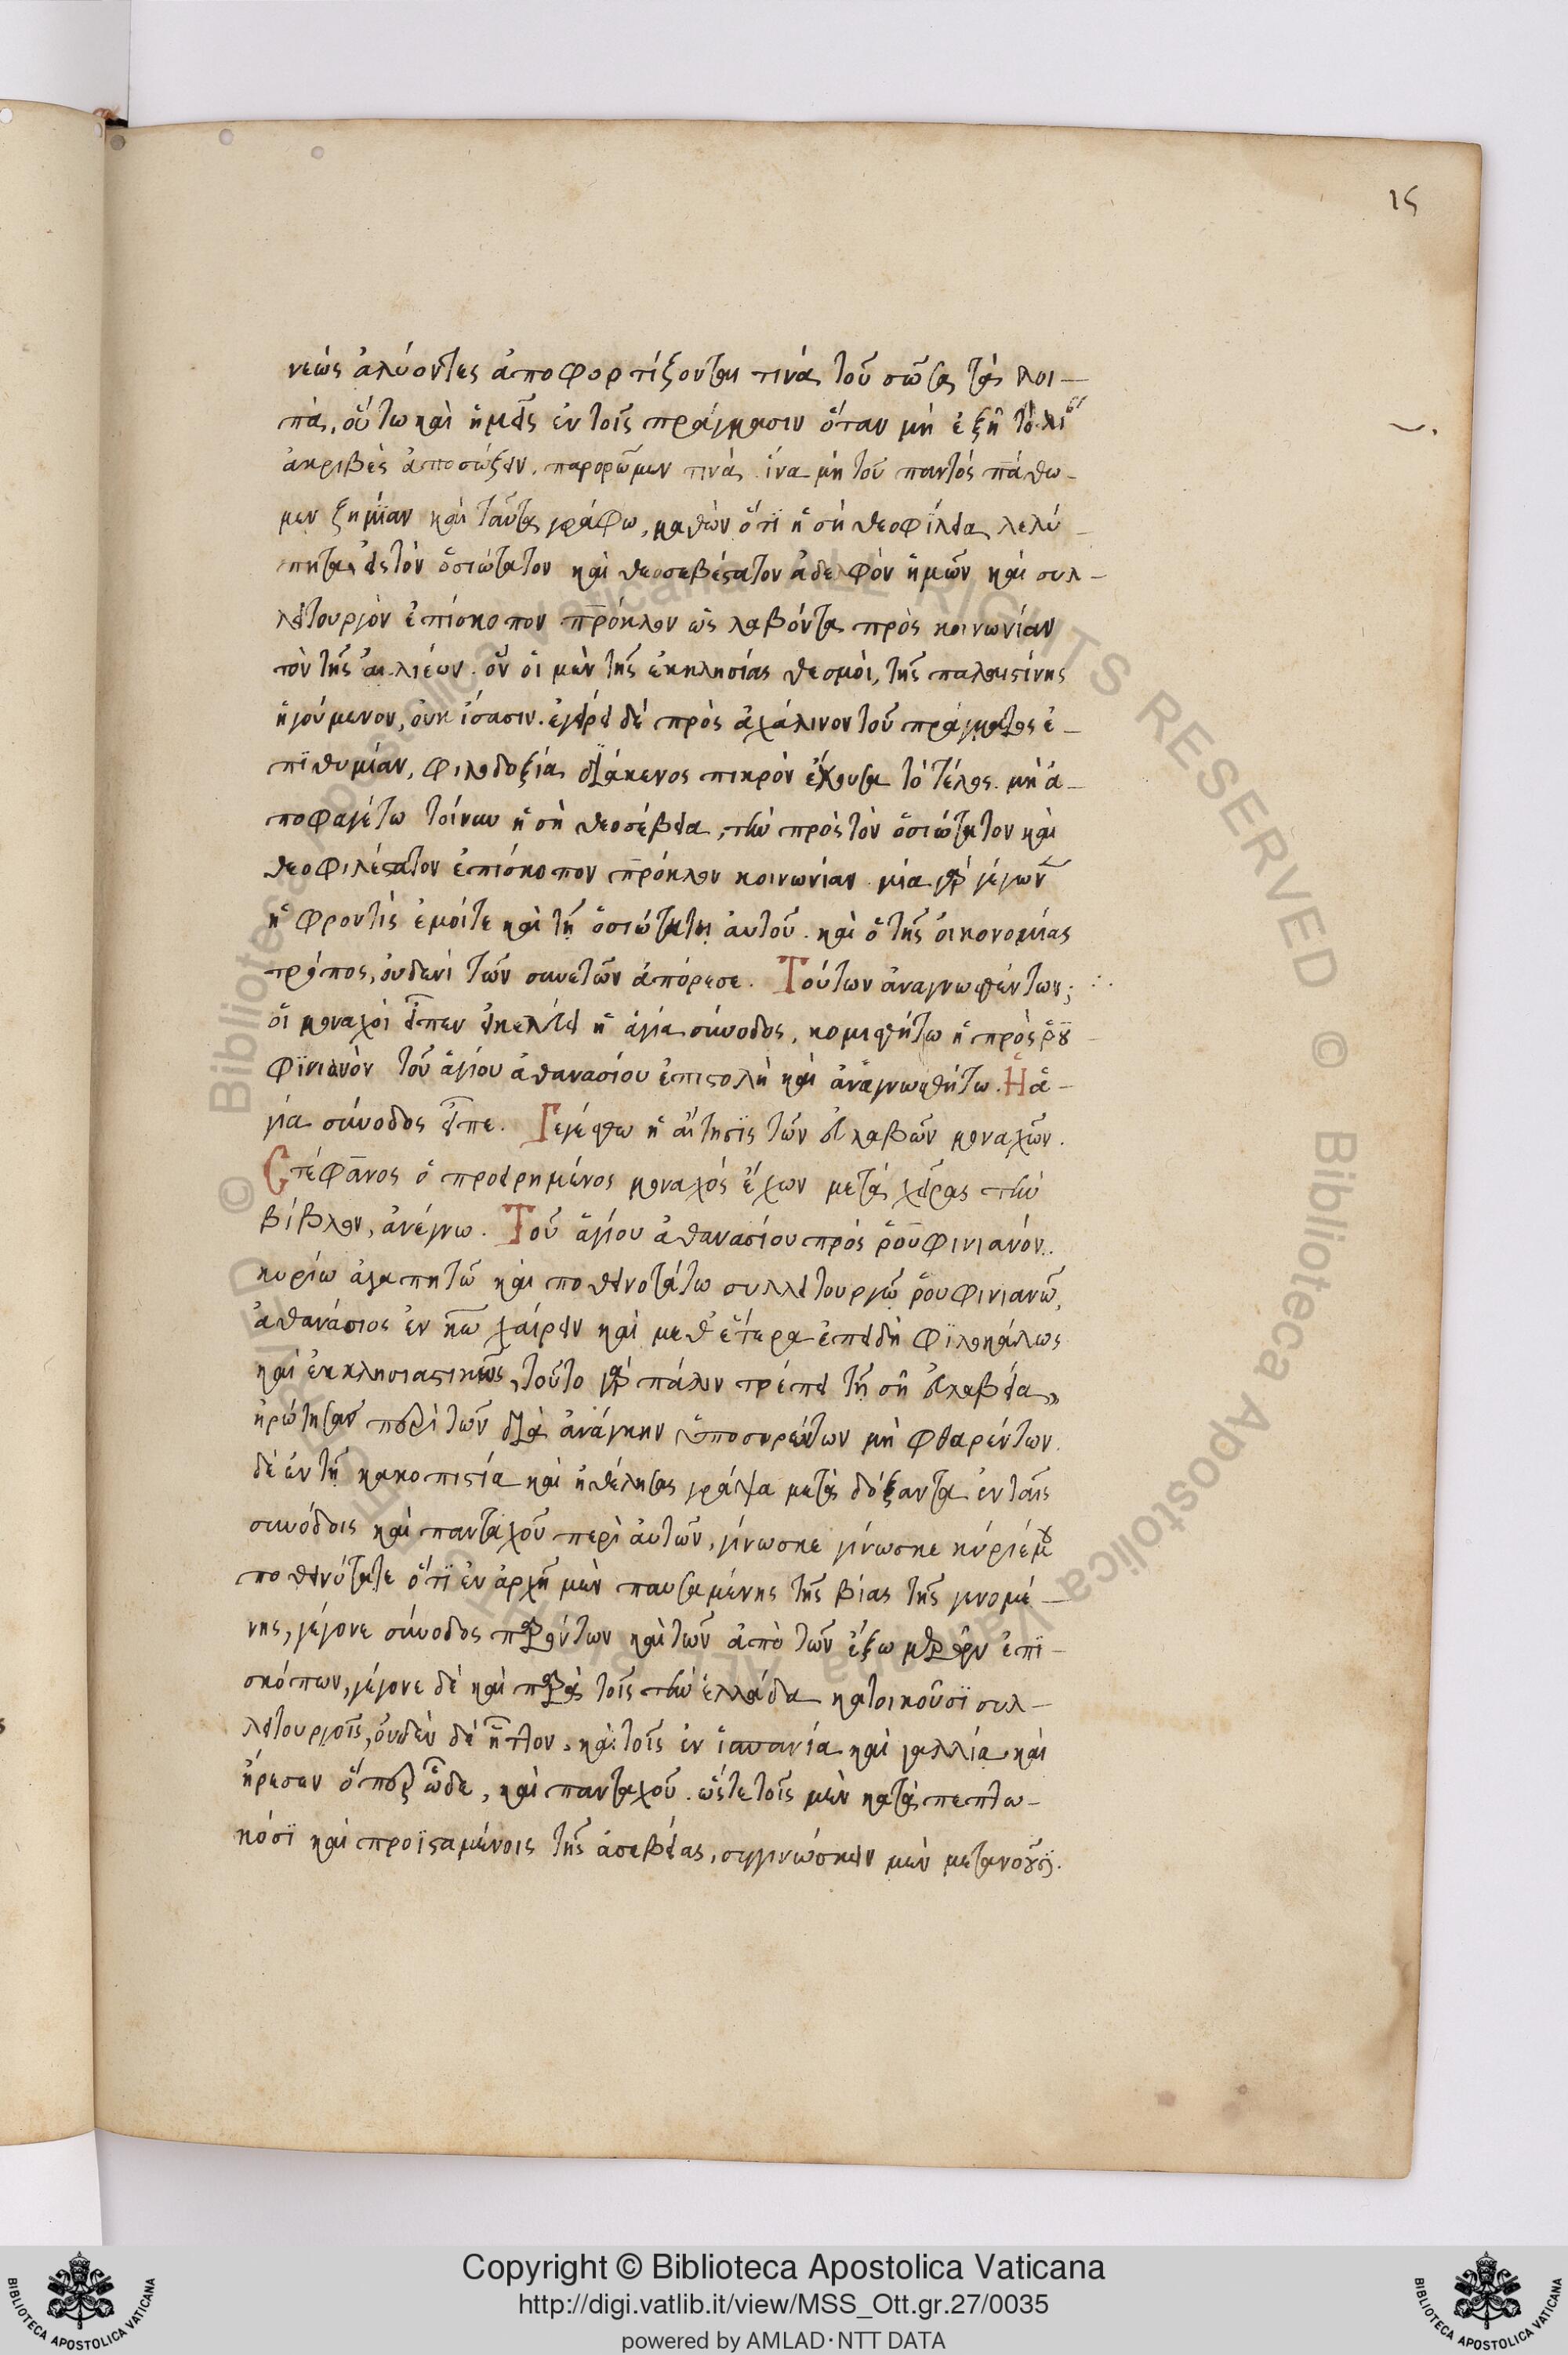 15
νεὼς ἀλύοντες ἀποφορτίζονται τινὰ τοῦ σῶσαι τὰ λοι-
πὰ, οὕτω καὶ ἡμεῖς ἐν τοῖς πράγμασιν ὅταν μὴ ἐξῆ τὸ
ἀκριβὲς ἀποσώζειν. παρορῶμεν τινὰ. ἵνα μὴ τοῦ παντὸς πάθω-
μεν ζημΐαν καὶ ταῦτα γράφω, μαθὼν ὅτϊ ἡ σὴ θεοφϊλεία λελύ-
πηται εἰς τὸν ὁσιώτατον καὶ θεοσεβέστατον ἀδελφὸν ἡμῶν καὶ συλ-
λειτουργὸν ἐπίσκοπον πρόκλον ὡς λαβόντα πρὸς κοινωνίαν
τὸν τῆς αἰλιέων. ὃν οἱ μὲν τῆς ἐκκλησίας θεσμοὶ, τῆς παλαιστίνης
ἡγούμενον, οὐκ ἴσασιν. ἐγείρει δὲ πρὸς ἀχάλινον τοῦ πράγματος ἐ-
πϊθυμίαν, φιλοδοξία διάκενος πικρὸν ἔχουσα τὸ τέλος. μὴ ἀ-
ποφαγέτω τοίνυν ἡ σὴ θεοσέβεια, τὴν πρὸς τὸν ὁσιώτατον καὶ
θεοφιλέστατον ἐπίσκοπον πρόκλον κοινωνίαν. μία γὰρ γέγονεν
ἡ φροντὶς ἐμοίτε καὶ τῇ ὁσιώτητι αὐτοῦ. καὶ ὁ τῆς οἰκονομίας
τρόπος, οὐδενὶ τῶν συνετῶν ἀπόρεσε. Τούτων ἀναγνωσθέντων;
οἱ μοναχοὶ εἶπεν ἡ ἁγία σύνοδος, κομισθήτω ἡ πρὸς ῥου
φϊνιανὸν τοῦ ἁγίου ἀθανασίου ἐπιστολὴ καὶ ἀναγνωσθήτω. Ἡ ἁ-
γία σύνοδος εἶπε. Γεγέσθω ἡ αἴτησϊς τῶν εὐλαβῶν μοναχῶν.
Στέφανος ὁ προειρημένος μοναχὸς ἔχων μετὰ χεῖρας τὴν
βίβλον, ἀνέγνω. Τοῦ ἁγίου ἀθανασίου πρὸς ῥουφινιανόν.
κυρίω ἀγαπητῶ καὶ ποθεινοτάτω συλλειτουργῶ ῥουφινιανῶ,
ἀθανάσιος ἐν κω χαίρειν καὶ μεθ' ἕτερα ἐπειδὴ φϊλοκάλως
καὶ ἐκκλησιαστικῶς, τοῦτο γὰρ πάλιν πρέπει τῇ σῇ εὐλαβεία,
ἠρώτησας περὶ τῶν διὰ ἀνάγκην ὑποσυρέντων μὴ φθαρέντων.
δὲ ἐν τῇ κακοπιστία καὶ ἠθέλησας γράψαι μετὰ δόξαντα ἐν ταῖς
συνόδοις καὶ πανταχοῦ περὶ αὐτῶν, γίνωσκε γίνωσκε κύριέ μου
ποθεινότατε ὅτϊ ἐν ἀρχῇ μὲν παυσαμένης τῆς βίας τῆς γενομέ-
νης, γέγονε σύνοδος παρόντων καὶ τῶν ἀπὸ τῶν ἔξω μερῶν ἐπϊ-
σκόπων, γέγονε δὲ καὶ παρὰ τοῖς τὴν ἑλλάδα κατοικοῦσϊ συλ-
λειτουργοῖς, οὐδὲν δὲ ἧττον. καὶ τοῖς ἐν ἱσπανία καὶ γαλλία καὶ
ἤρεσεν ὅπερ ὧδε, καὶ πανταχοῦ. ὥστε τοῖς μὲν κατὰ πεπτω-
κόσϊ καὶ προϊσταμένοις τῆς ἀσεβείας, συγγινώσκειν μὲν μετανοοῦσϊ.
Copyright © Biblioteca Apostolica Vaticana
http://digi.vatlib.it/view/MSS_Ott.gr.27/0035
powered by AMLAD·NTT DATA